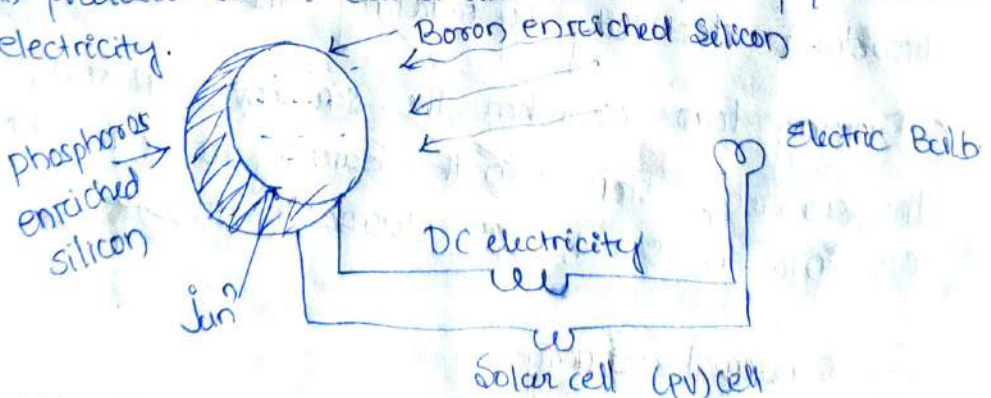 electricity.
Boron enraiched Silicon
phosphoros
enraiched
silicon
Electric Baulb
DC electricity
junⁿ
Solar cell (PV) cell